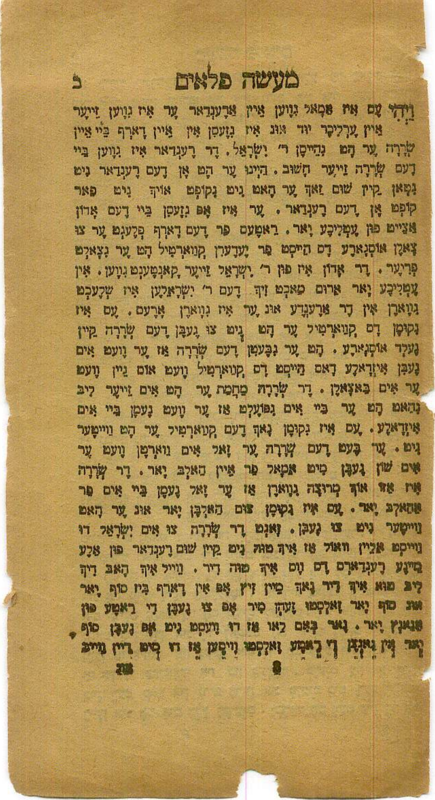 מעשה פלאים ב
וַיְהִי עס איז אמאל גווען איין ארענדאר ער איז גווען זייער
איין ערליכער יוד אונ איז גזעסן אין איין דארף ביי איין
שררה ער הט גהייסן ר׳ ישראל. דר רענדאר איז גווען ביי
דעם שררה זייער חשוב. היינו ער הט אן דעם רענדאר ניט
גטאן קין שום זאך ער האט ניט גקופט אויך ניט פאר
קופט אן דעם רענדאר. ער איז אפ גזעסן ביי דעם אדון
אצייט פון עטליכע יאר. ראטעס פר דעם דארף פלעגט ער צו
צאלן אוסנארע דס הייסט פר יעדערן קווארטיל הט ער גצאלט
פריער. דר אדון איז פון ר׳ ישראל זייער קאנטענט גווען. אין
עטליכע יאר ארום מאכט זיך דעם ר׳ ישראלען איז שלעכט
גווארין אין דר ארענדע אונ ער איז גווארן ארעם. עס איז
גקומן דס קווארטיל ער הט ניט צו געבן דעם שררה קיין
געלד אוסנארע. הט ער גבעטן דעם שררה אז ער וועט אים
געבן איזדאלע דאס הייסט דס קווארטיל וועט אוס גיין וועט
ער אים באצאלן. דר שררה מחמת ער הט אים זייער ליב
גהאט הט ער ביי אים גפועלט אז ער וועט נעמן ביי אים
איזדאלע. עס איז גקומן נאך דעם קווארטיל ער הט ווייטער
ניט. ער בעט דעם שררה ער זאל אים ווארטן וועט ער
אים שון געבן מיט אמאל פר איין האלב יאר. דר שררה
איז אזו אויך מרוצה גווארן אז ער זאל נעמן ביי אים פר
אהאלב יאר. עס איז גקומן צום האלבן יאר אונ ער האט
ווייטער ניט צו געבן. זאגט דר שררה צו אים ישראל דו
ווייסט אליין וואול אז איך טוה ניט קיין שום רענדאר פון אלע
מיינע רענדארס דס וס איך טוה דיר. ווייל איך האב דיך
ליב טוא איך דיר נאך מיין זיץ אפ אין דארף ביז סוף יאר
אונ סוף יאר זאלסטו זעהן מיר אפ צו געבן די ראטע פון
אגאנץ יאר. נאר באם לאו אז דו וועסט ניט אפ געבן סוף
יאר אין גאנצן די ראטע זאלסטו וויסען אז דו מיט דיין ווייב
אונ